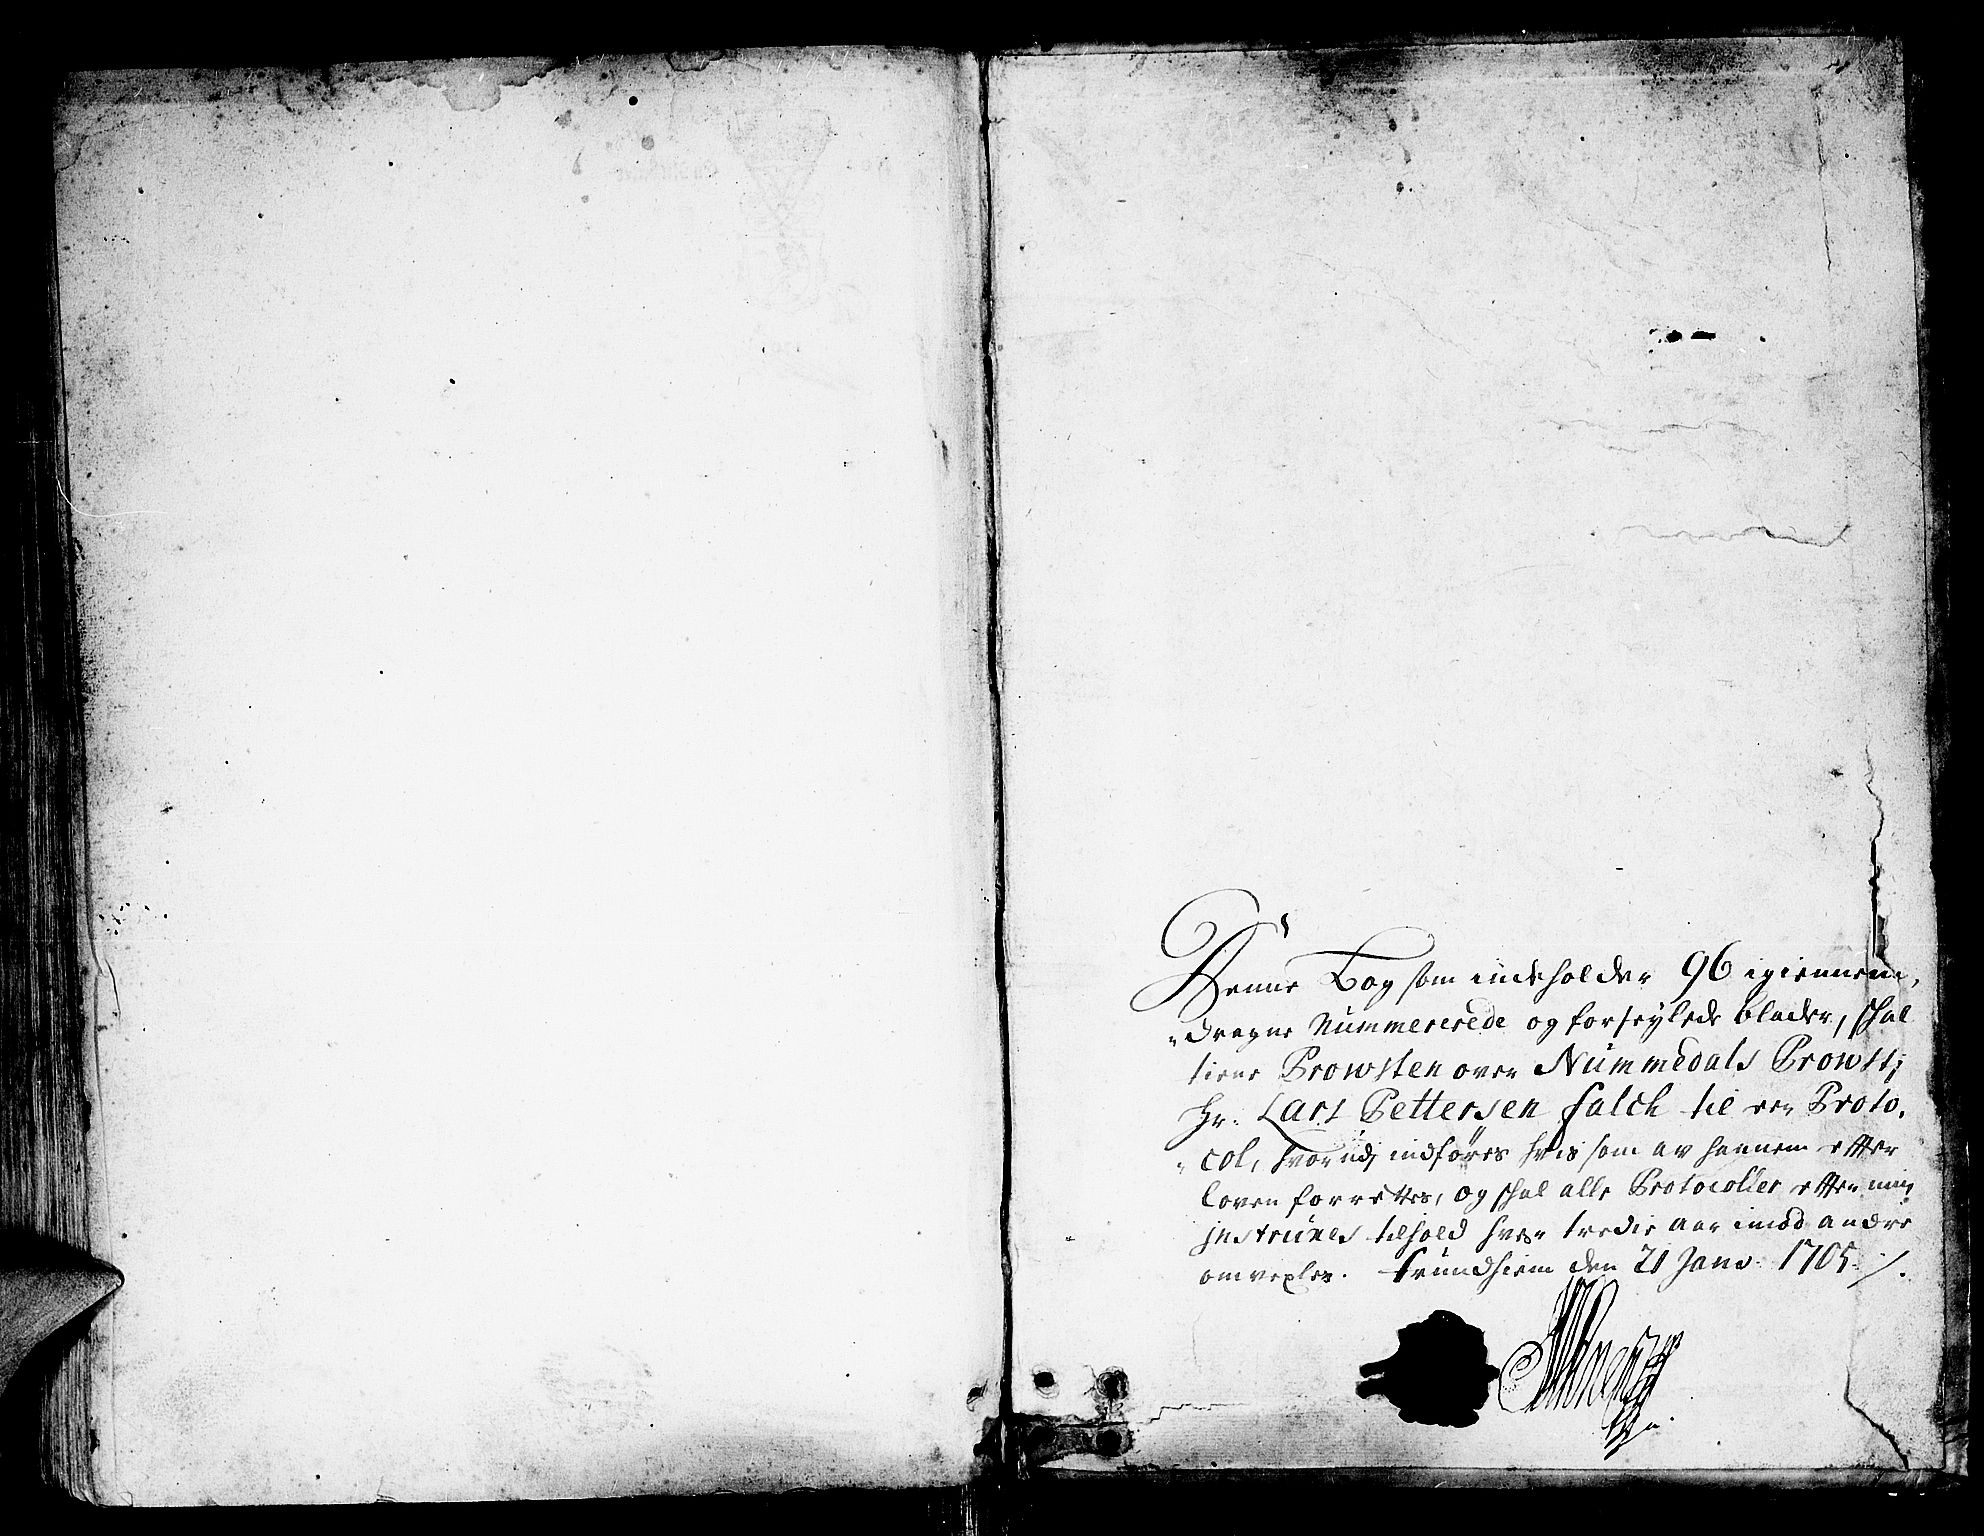 Denne Bog som indeholder 96 igiennem,
„dragne Nummererede og forseylede blader, skal
tiene Prowsten over Nummedals Prowsti,
Hr: Lars Pettersen Falch til een Proto,
„col, hvorudj indføres hvis som av hannem effter
loven forrettes, og skal alle Protocoller effter min
jnstruxes tilhold hver tredie aar imod andre
omvexles. Trundhiem den 21 Janv: 1705 ./.